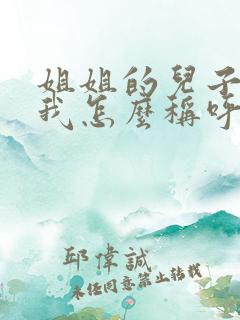 姐姐的兒子
我怎麼稱呼
邱偉誠
未經同意禁止轉載